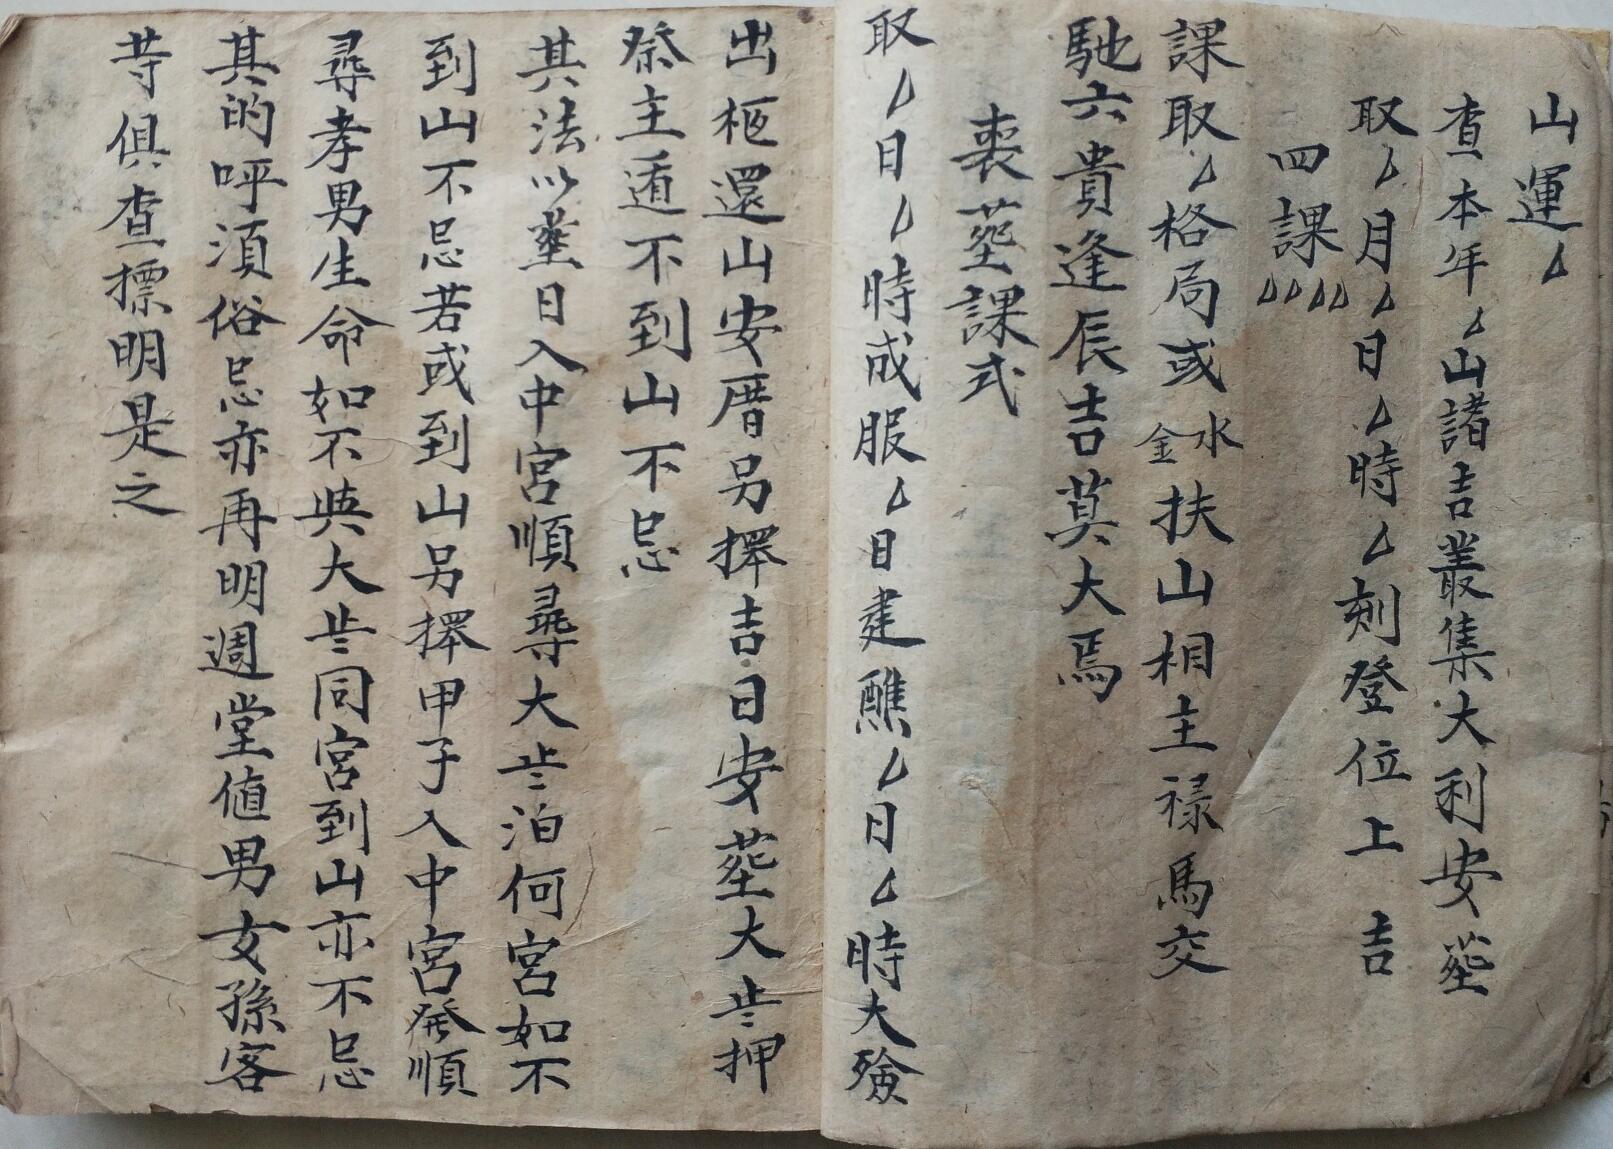 山運𠃋
查本年𠃋山諸吉叢集大利安葬
取𠃋月𠃋日𠃋時𠃋刻登位上吉
四課𠃋𠃋𠃋𠃋
課取𠃋格局或水金扶山相主禄馬交
馳六貴逢辰吉莫大焉
喪葬課式
取𠃋日𠃋時成服𠃋日建醮𠃋日𠃋時大殮
出柩還山安厝另擇吉日安葬大押
祭主遁不到山不忌
其法以葬日入中宮順尋大泊何宮如不
到山不忌若或到山另擇甲子入中宮發順
尋孝男生命如不與大同宮到山亦不忌
其的呼須俗忌亦再明週堂値男女孫客
䓁俱查摽明是之